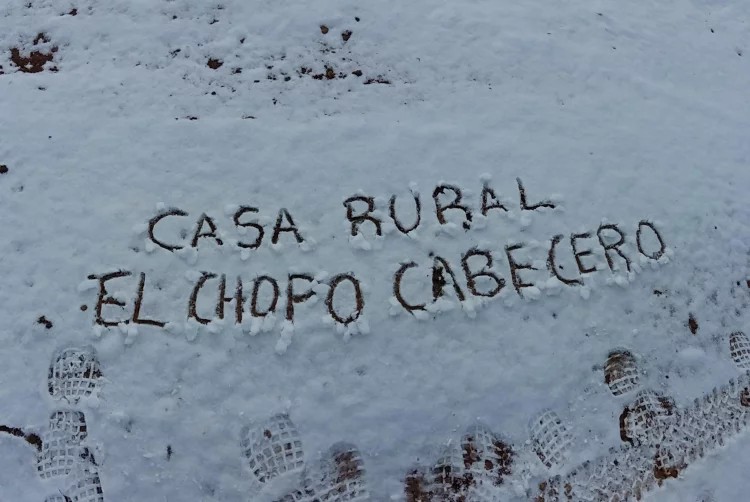 CASA RURAL
EL CHOPO CABECERO